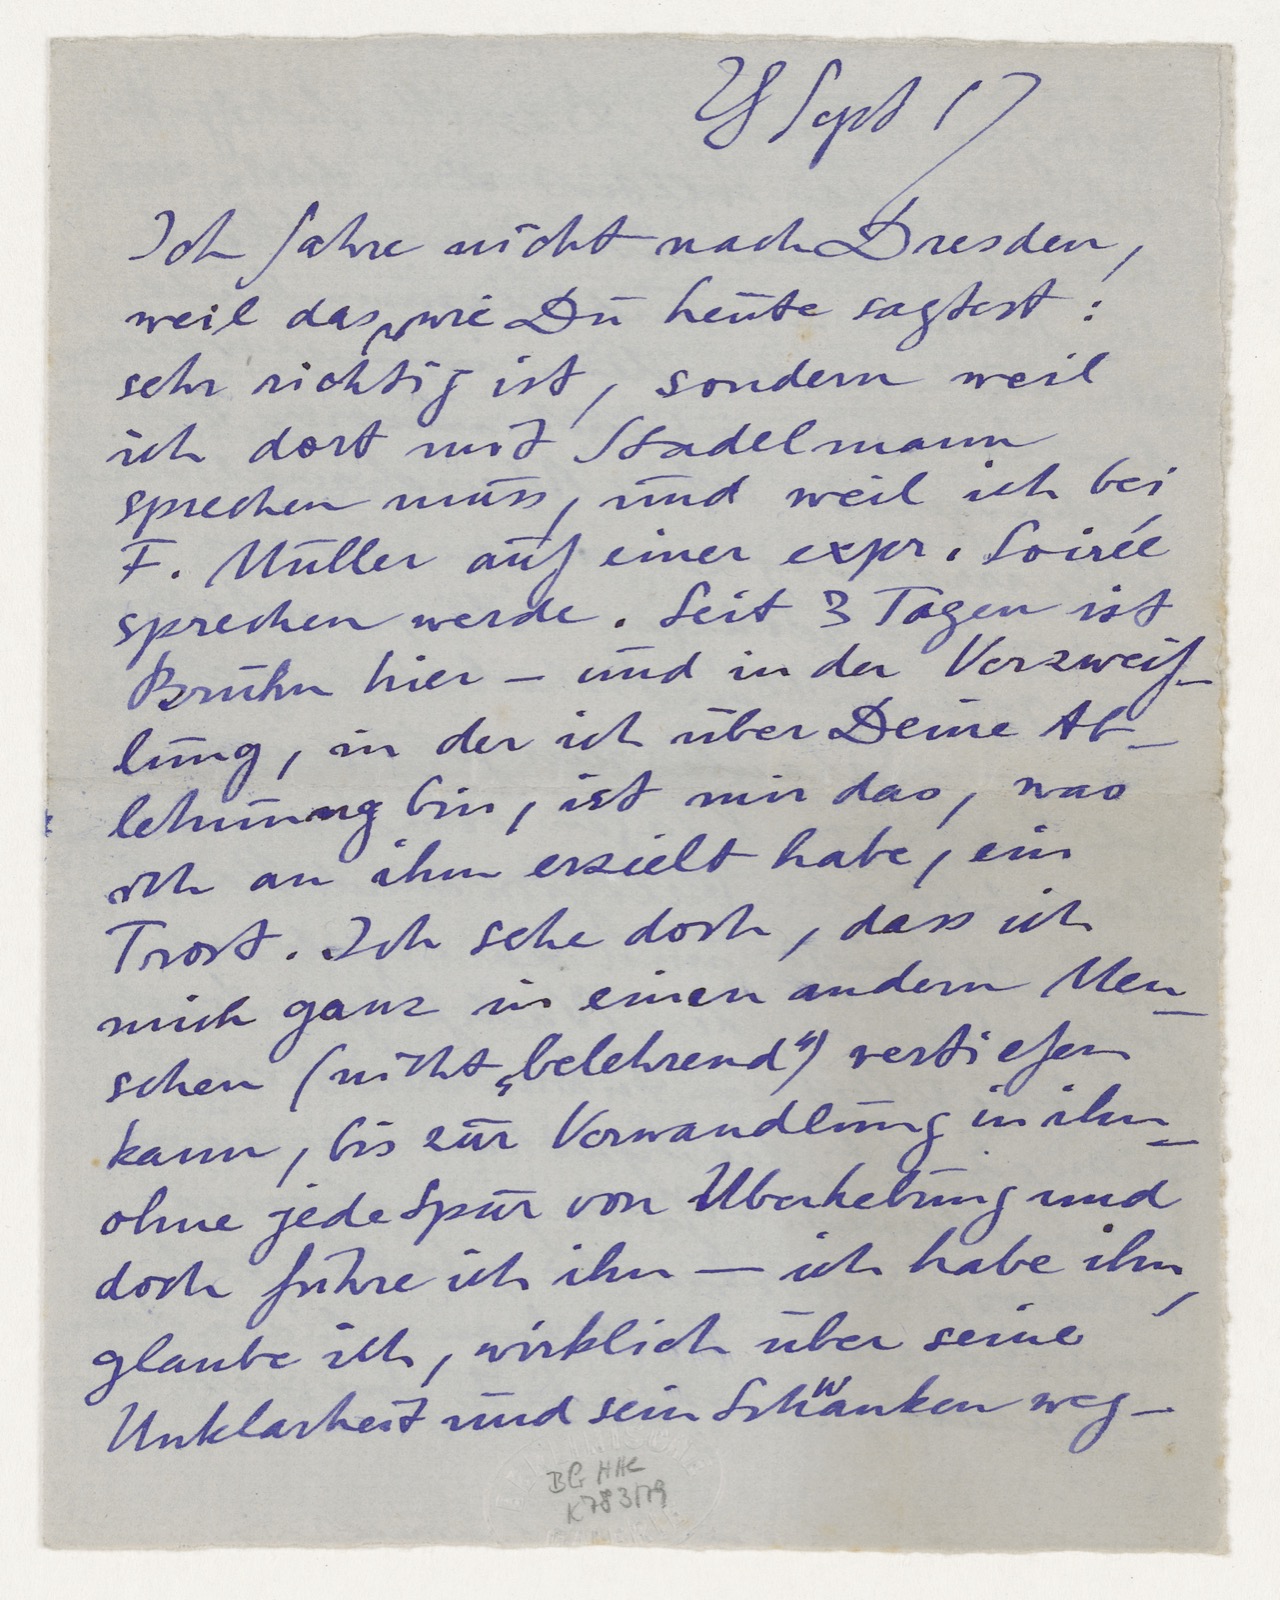 28 Sept 17
Ich fahre nicht nach Dresden,
weil das, wie Du heute sagtest:
sehr richtig ist, sondern weil
ich dort mit Stadelmann
sprechen muss, und weil ich bei
F. Müller auf einer expr. Soirée
sprechen werde. Seit 3 Tagen ist
Bruhn hier — und in der Verzweif-
lung, in der ich über Deine Ab-
lehnung bin, ist mir das, was
ich an ihm erzielt habe, ein
Trost. Ich sehe doch, dass ich
mich ganz in einen andern Men-
schen (nicht „belehrend“) vertiefen
kann, bis zur Verwandlung in ihn —
ohne jede Spur von Überhebung und
doch führe ich ihn — ich habe ihn,
glaube ich, wirklich über seine
Unklarheit und sein Schwanken weg-
BG HHC
K783/79